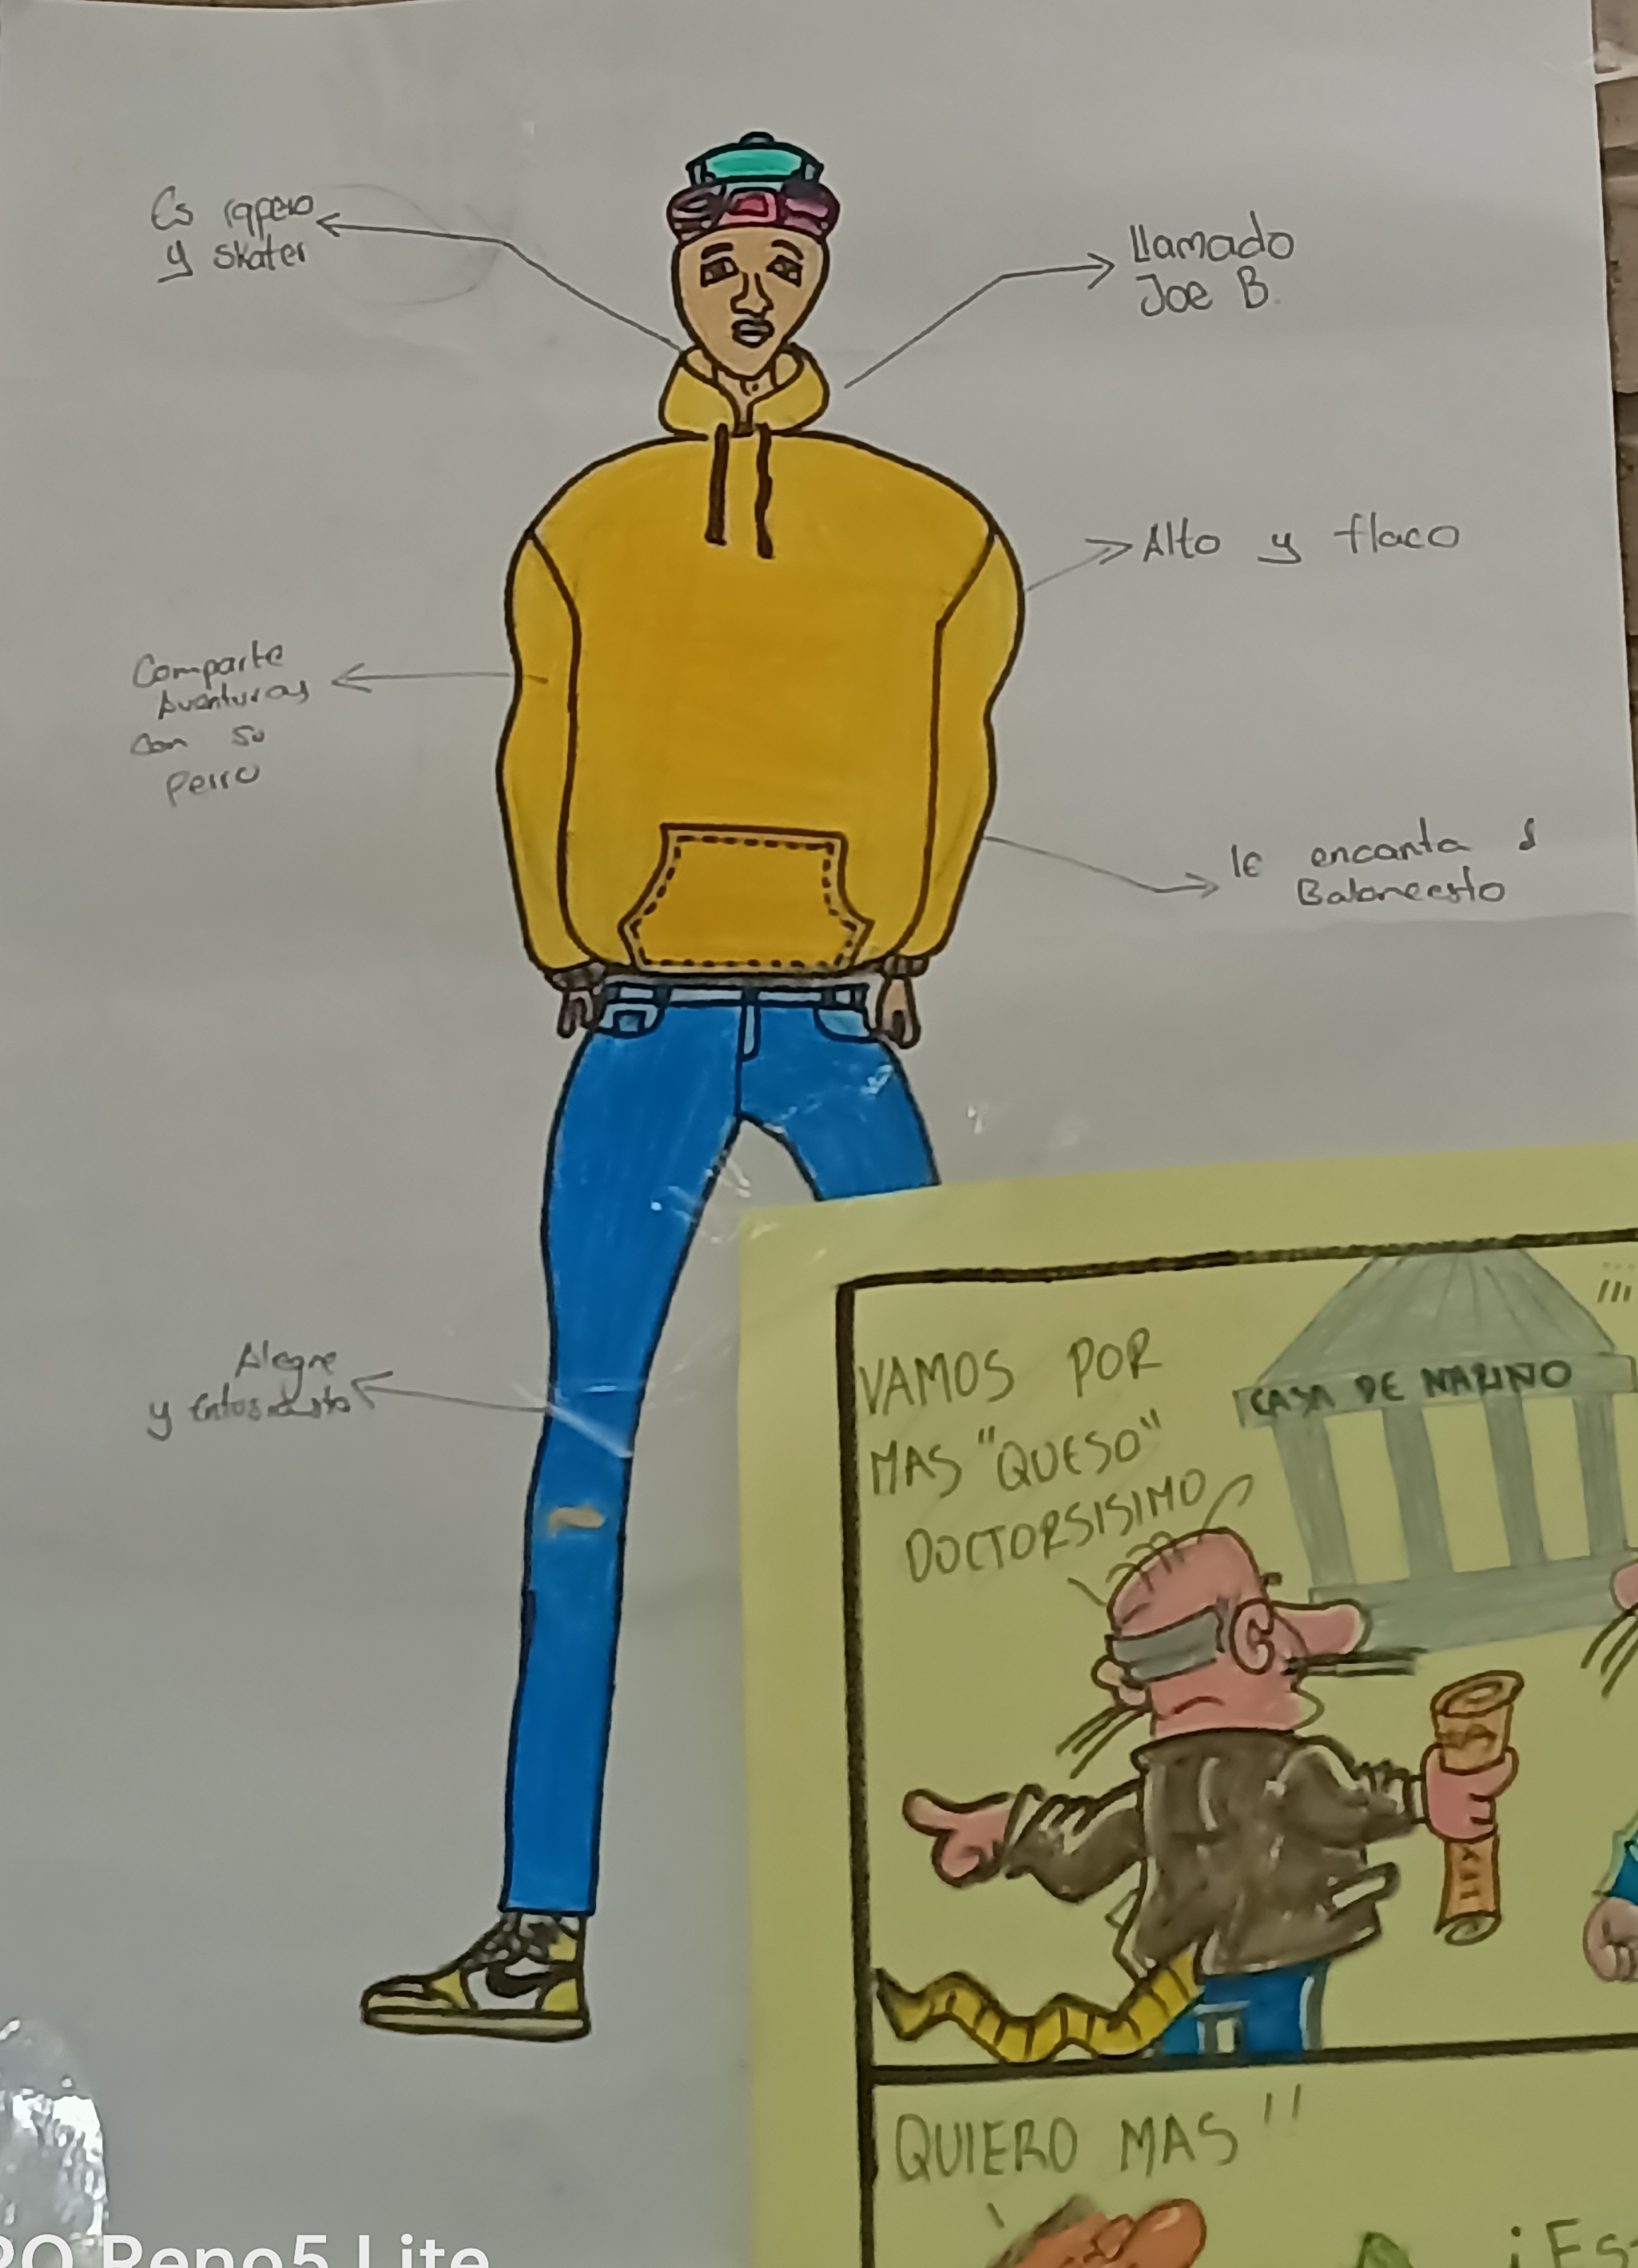 Es rapero
y skater
llamado
Joe B.
Alto y flaco
Comparte
Aventuras
con su
perro
le encanta el
Baloncesto
Alegre
y
VAMOS POR
MAS "QUESO"
DOCTORSISIMO
CASA DE NARIÑO
QUIERO MAS!!
¡Es
Reno5 Lite